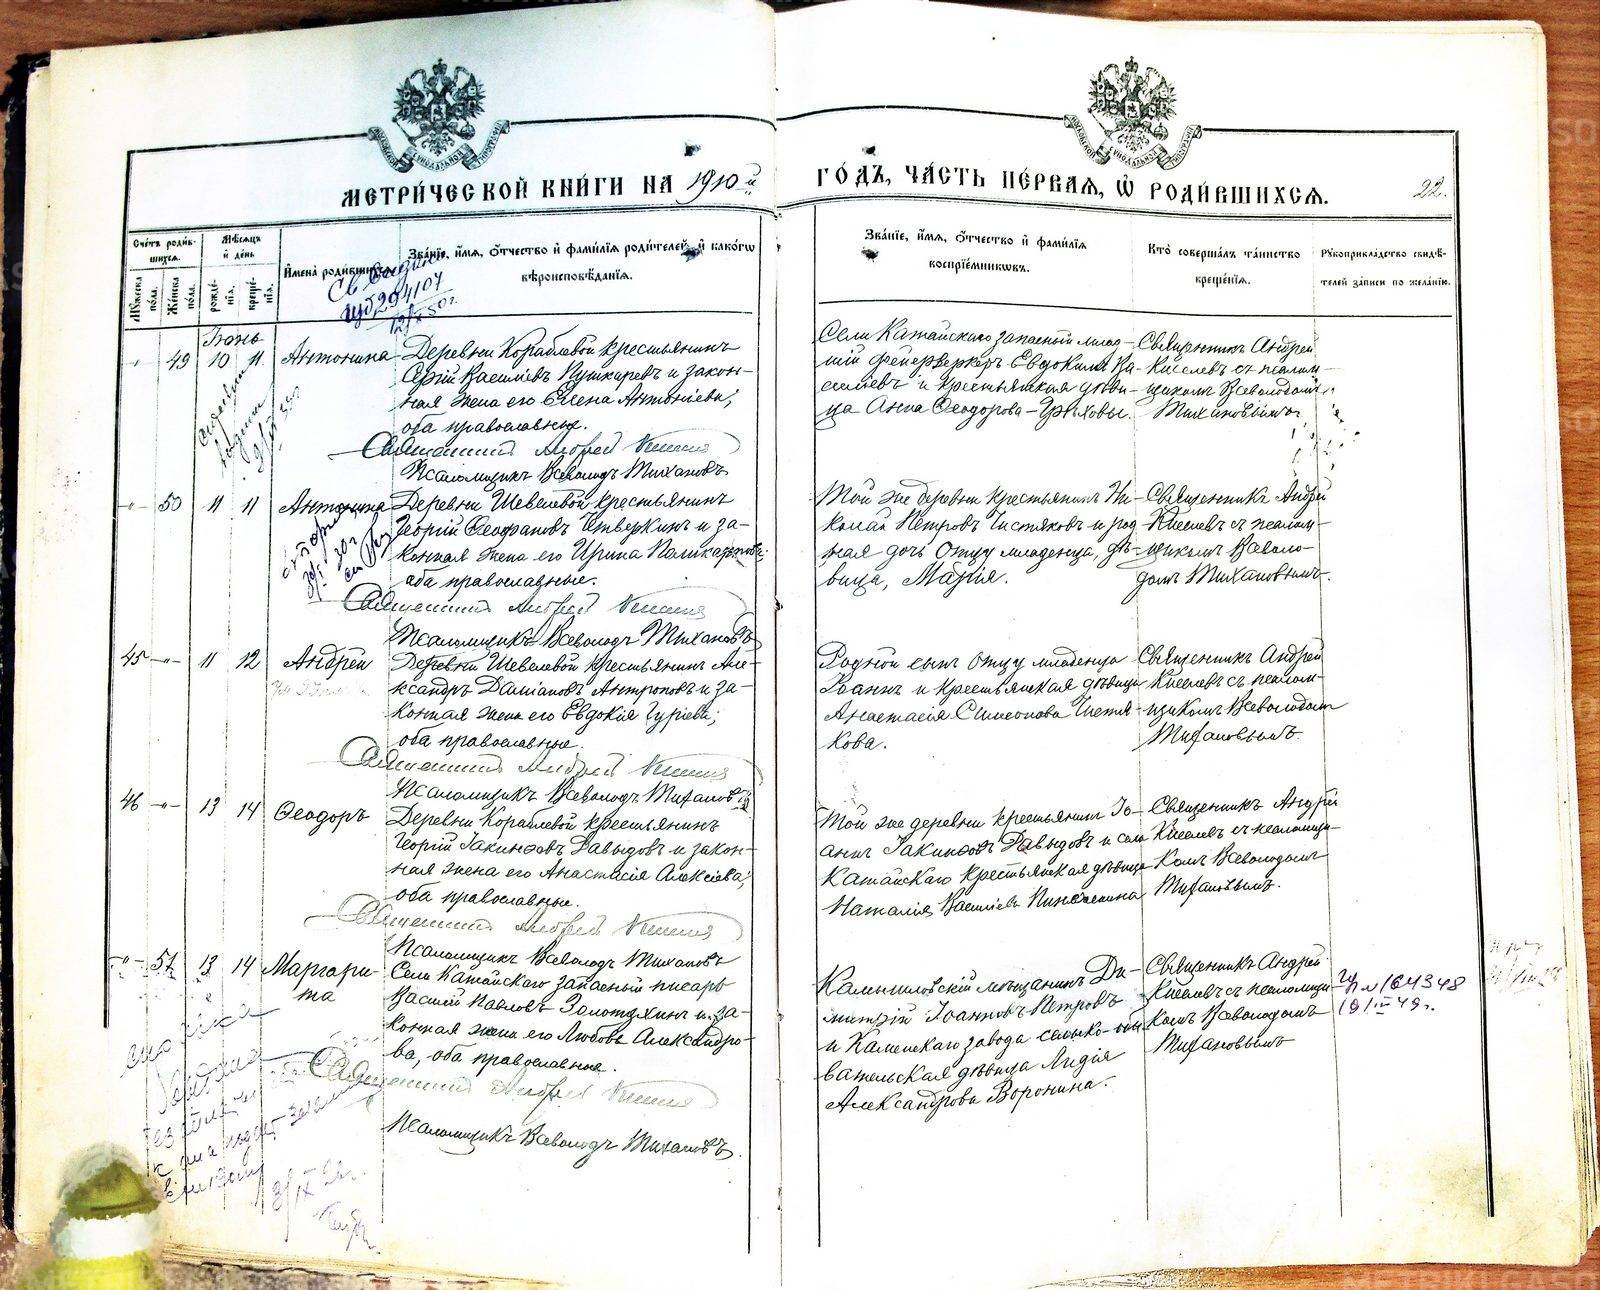 МЕТРИ́ЧЕСКОЙ КНИ́ГИ НА 1910й
ГО́ДЪ, ЧА́СТЬ ПЕ́РВАЯ, Ѡ҆ РОДИ́ВШИХСЯ.
22.
Сче́тъ роди́в-
шихся.
Мꙋ́жеска
по́ла.
Же́нска
по́ла.
Мѣ́сяцъ
и҆ де́нь
рожде́-
нїя.
креще́-
нїя.
И҆мена̀ роди́вшихся.
Зва́нїе, и҆́мя, ѻ҆́тчество и҆ фами́лїя роди́телей, и҆ како́гѡ
вѣроисповѣ́данїя.
Зва́нїе, и҆́мя, ѻ҆́тчество и҆ фами́лїя
воспрїе́мниковъ.
Кто̀ соверша́лъ та́инство
креще́нїя.
Рꙋкоприкла́дство свидѣ́-
телей за́писи по жела́нїю.
254107
Іюнь
49 10 11 Антонина
Деревни Кораблевой крестьянинъ
Сергій Василіевъ Пушкаревъ и закон-
ная жена его Елена Антоніева;
оба православные.
Священникъ Андрей Киселев
Псаломщикъ Всеволодъ Тихановъ
Села Катайскаго запасный млад-
шій фейерверкеръ Евдокимъ Ва-
силіевъ и крестьянская дѣви-
ца Анна Ѳеодорова
Священникъ Андрей
Киселевъ съ псалом-
щикомъ Всеволодомъ
Тихановымъ.
50 11 11 Антонина
Деревни Шевелевой крестьянинъ
Георгій Ѳеофановъ Четверкинъ и за-
конная жена его Ирина Поликарпова;
оба православные.
Священникъ Андрей Киселев
Псаломщикъ Всеволодъ Тихановъ
Той же деревни крестьянинъ Ни-
колай Петровъ Чистяковъ и род-
ная дочь отцу младенца, дѣ-
вица, Марія.
Священникъ Андрей
Киселевъ съ псалом-
щикомъ Всеволо-
домъ Тихановымъ.
45 11 12 Андрей
Деревни Шевелевой крестьянинъ Але-
ксандръ Даміановъ Антроповъ и за-
конная жена его Евдокія Гуріева;
оба православные.
Священникъ Андрей Киселев
Псаломщикъ Всеволодъ Тихановъ
Родной сынъ отцу младенца
Іоаннъ и крестьянская дѣвица
Анастасія Симеонова Чистя-
кова.
Священникъ Андрей
Киселевъ съ псалом-
щикомъ Всеволодомъ
Тихановымъ.
46 13 14 Ѳеодоръ
Деревни Кораблевой крестьянинъ
Георгій Іакинѳовъ Давыдовъ и закон-
ная жена его Анастасія Алексіева;
оба православные.
Священникъ Андрей Киселев
Псаломщикъ Всеволодъ Тихановъ
Той же деревни крестьянинъ Іо-
аннъ Іакинѳовъ Давыдовъ и села
Катайскаго крестьянская дѣвица
Наталія Василіева
Священникъ Андрей
Киселевъ съ псаломщи-
комъ Всеволодомъ
Тихановымъ.
51 13 14 Маргари-
та
Села Катайскаго запасный писарь
Василій Павловъ Золотухинъ и за-
конная жена его Любовь Александро-
ва, оба православные.
Священникъ Андрей Киселев
Псаломщикъ Всеволодъ Тихановъ.
Камышловскій мѣщанинъ Ди-
митрій Іоанновъ Петровъ
и Каменскаго завода
вательская дѣвица Лидія
Александрова Воронина.
Священникъ Андрей
Киселевъ съ псаломщи-
комъ Всеволодомъ
Тихановымъ
164348